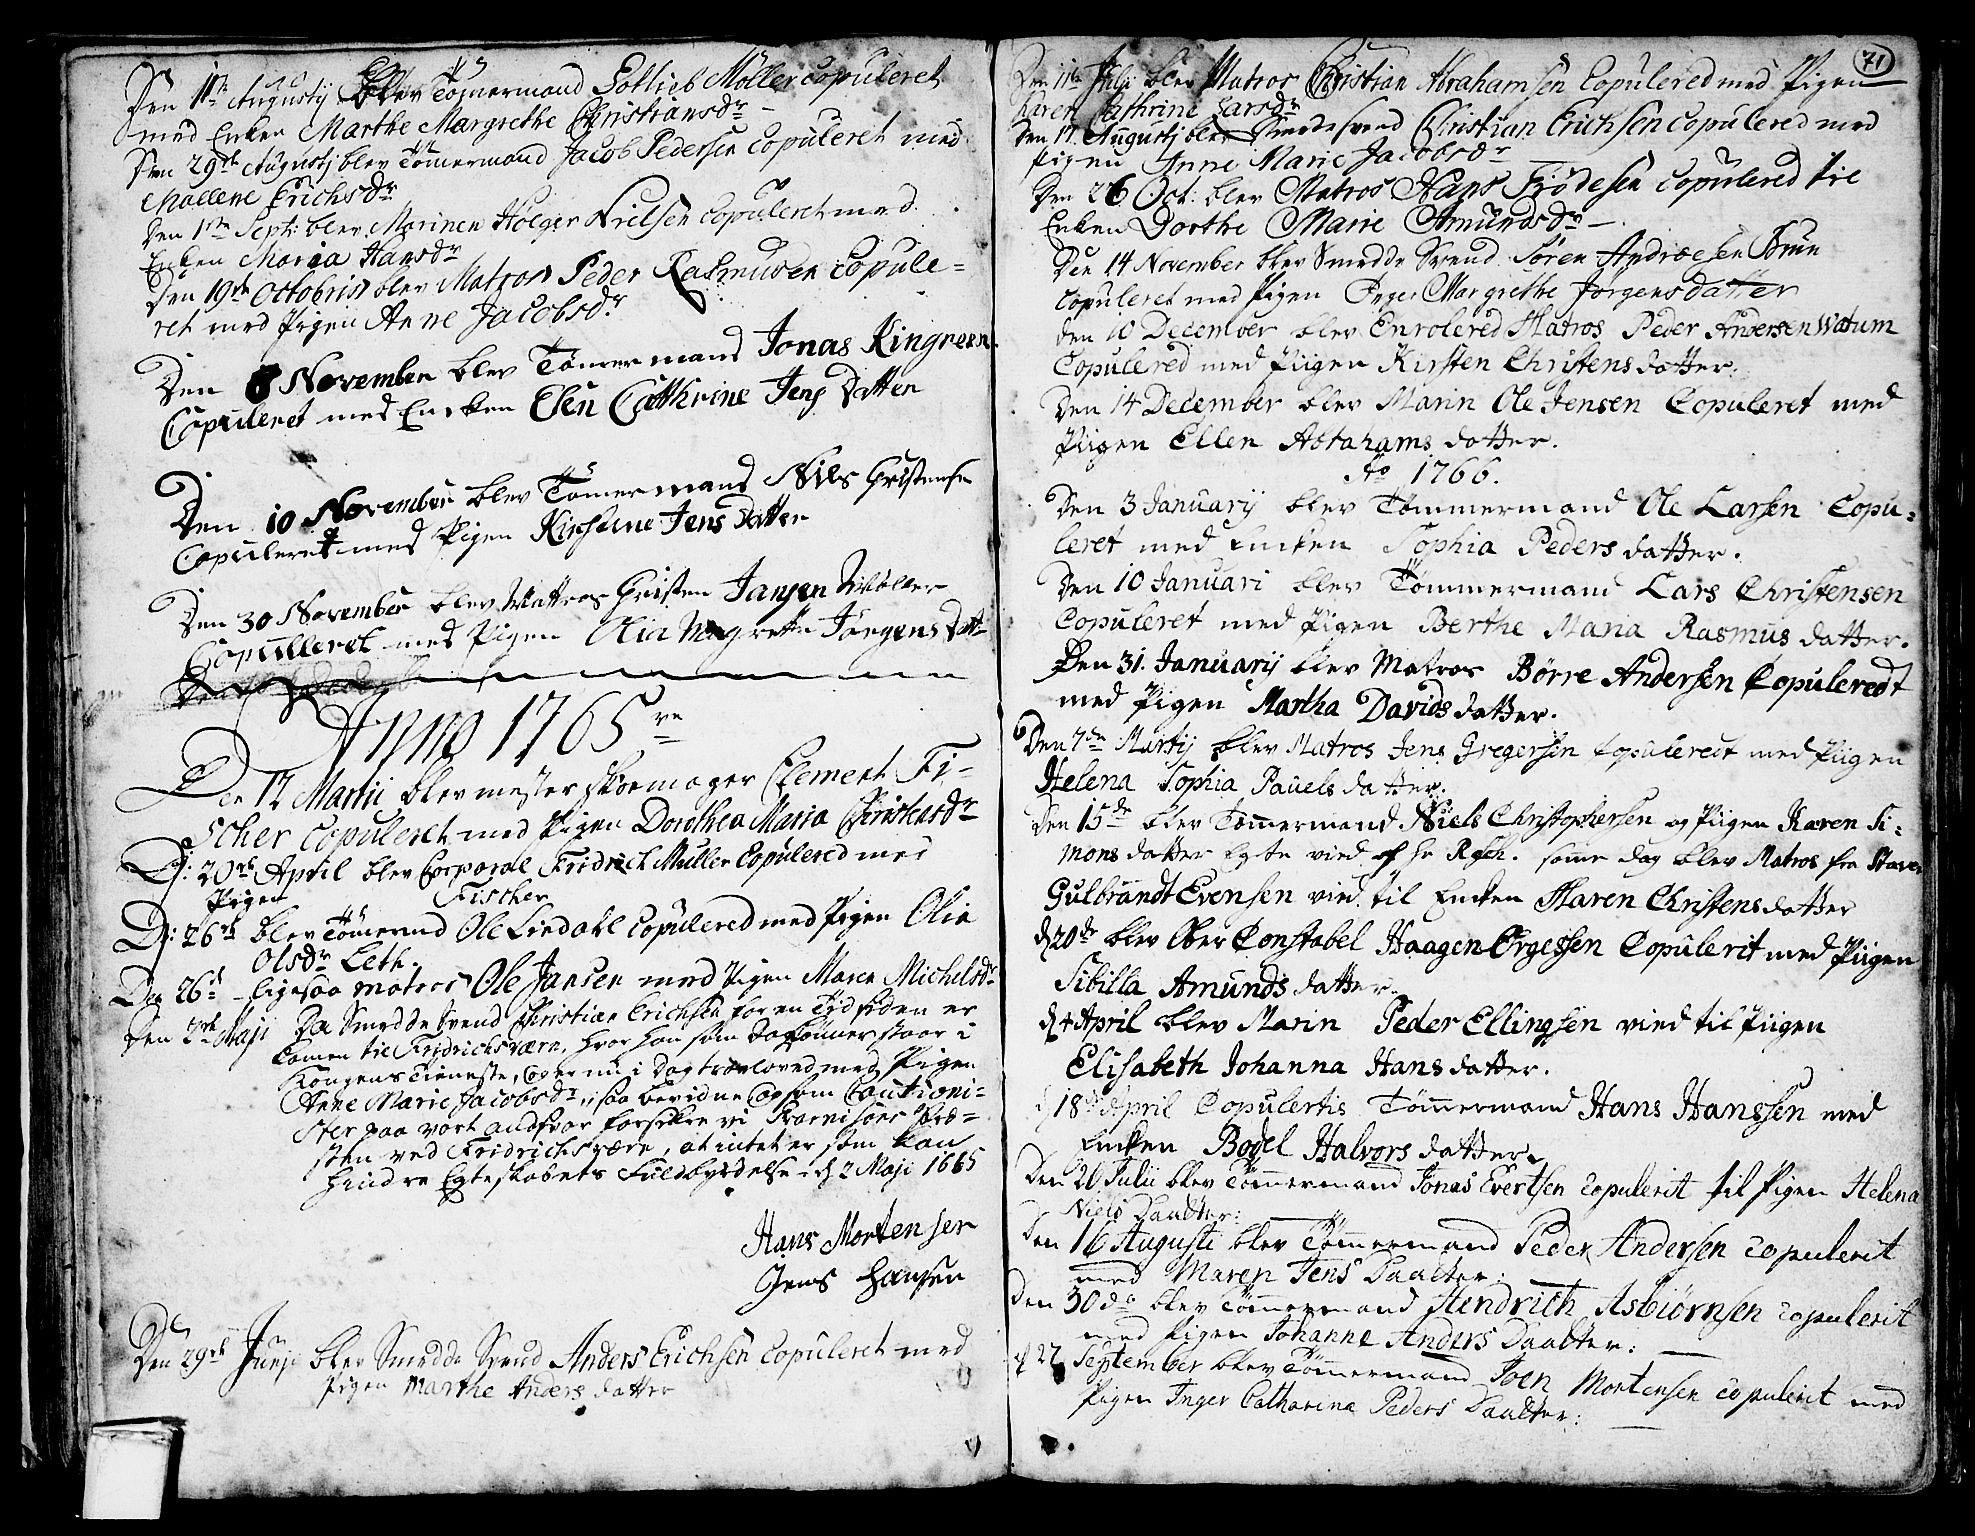 Den 11te Augustij blev Tømermand Gotlieb Møller copuleret
med Enken Marthe Margrethe Christiansdr
Den 29de Augustj blev Tømermand Jacob Pedersen copuleret med
Mallene Erichsdr
Den 1ste Sept: blev Marinen Holger Nielsen copuleret med
Enken Maria Hansdr
Den 19de Octobris blev Matros Peder Rasmusen copule=
ret med Pigen Anne Jacobsdr
Den 8 November blev Tømermand Jonas Ringreen
Copuleret med Encken Elsn Cathrine Jens Datter
Den 10 November blev Tømermand Nils Gristense
Copuleret med Pigen Kirstine Jens Datter
Den 30 November blev Mattros Gristen Jansen Møller
Copulleret med Pigen Olia Magrette Jörgens Datt
Anno 1765ve
Den 12 Martii blev mester skoemager Clement Fi=
scher copuleret med Pigen Dorothea Maria Christensdr
D: 20de April blev Corporal Fridrich Müller Copulered med
Pigen Fischer
D: 26de blev Tömermd Ole Liedahl copulered med Pigen Olia
Olsdr Leth.
Den 26d ligesaa matros Ole Jansen med Pigen Maren Michelsdr
Den 2de Maji Da Smedde Svend Christian Erichsen for en Tyd siden er
komen til Fridrichsværn, hvor han som Dagløner staar i
Kongens Tieneste, og er nu i Dag troloved med Pigen
Anne Marie Jacobsdr, saa bevidne og som Cautioni=
ster paa vort andsvar forsikre vi Garnisons Præ=
sten ved Fridrichsværn, at intet er som kan
hindre Egteskabets Fuldbyrdelse. d 2 Maji 1665
Hans Mortenser
Jens Hansen
Den 29de Junji blev Smedde Svend Anders Erichsen copuleret med
Pigen Marthe Anders datter
71
Den 11te Julji blev Matros Christian Abrahamsen Copulered med Pigen
Karen Cathrine Larsdr
Den 17 Augustj blev Smedesvend Christian Ericksen copulered med
Pigen Anne Marie Jacobsdr
Den 26 Oct: blev Matros Hans Frödesen copulered til
Enken Dorthe Marie Amundsdr
Den 14 November blev Smedde Svend Søren Andræsen Brun
copuleret med Pigen Inger Margrethe Jörgensdatter
den 10 December blev Enrolered Matros Peder Andersen Watum
Copulered med Piigen Kirsten Christens datter.
Den 14 December blev Marin Ole Jensen Copuleret med
Piigen Ellen Abrahams datter.
Ao 1766.
Den 3 Januarij blev Tømmermand Ole Larsen Copu=
leret med Encken Sophia Peders datter.
Den 10 Januari blev Tømmermand Lars Christensen
Copuleret med Pigen Berthe Maria Rasmus datter.
Den 31. Januarij blev Matros Börre Andersen Copuleredt
med Pigen Martha Davids datter.
Den 7de Martij blev Matros Jens Gregersen Copuleret med Piigen
Helena Sophia Pauels datter.
Den 15de blev Tømermand Niels Christophersen og Piigen Karen Si=
mons datter Egte vied af hr Resch. same dag blev Matros fra Staver
Gulbrandt Evensen vied til Encken Maren Christens datter
d 20de blev Ober Constabel Haagen Örgessen Copulerit med Piigen
Sibilla Amunds datter.
d 4 April blev Marin Peder Ellingsen vied til Piigen
Elisabeth Johanna Hans datter.
d 18de April Copulertis Tømmermand Hans Hanssen med
Encken Bodel Halvors datter.
Den 20 Julii blev Tømmermand Jonas Evertsen copulerit til Pigen Helena
Niels Daatter:
Den 16 Augusti blev Tømmermand Peder Andersen copulerit
med Maren Jens Daatter:
Den 30de blev Tømmermand Hendrich Asbiørnsen copulerit
med Pigen Johanne Anders Daatter:
d 27 September blev Tømmermand Joen Mortensen copulerit med
Pigen Inger Catharina Peders Daatter: